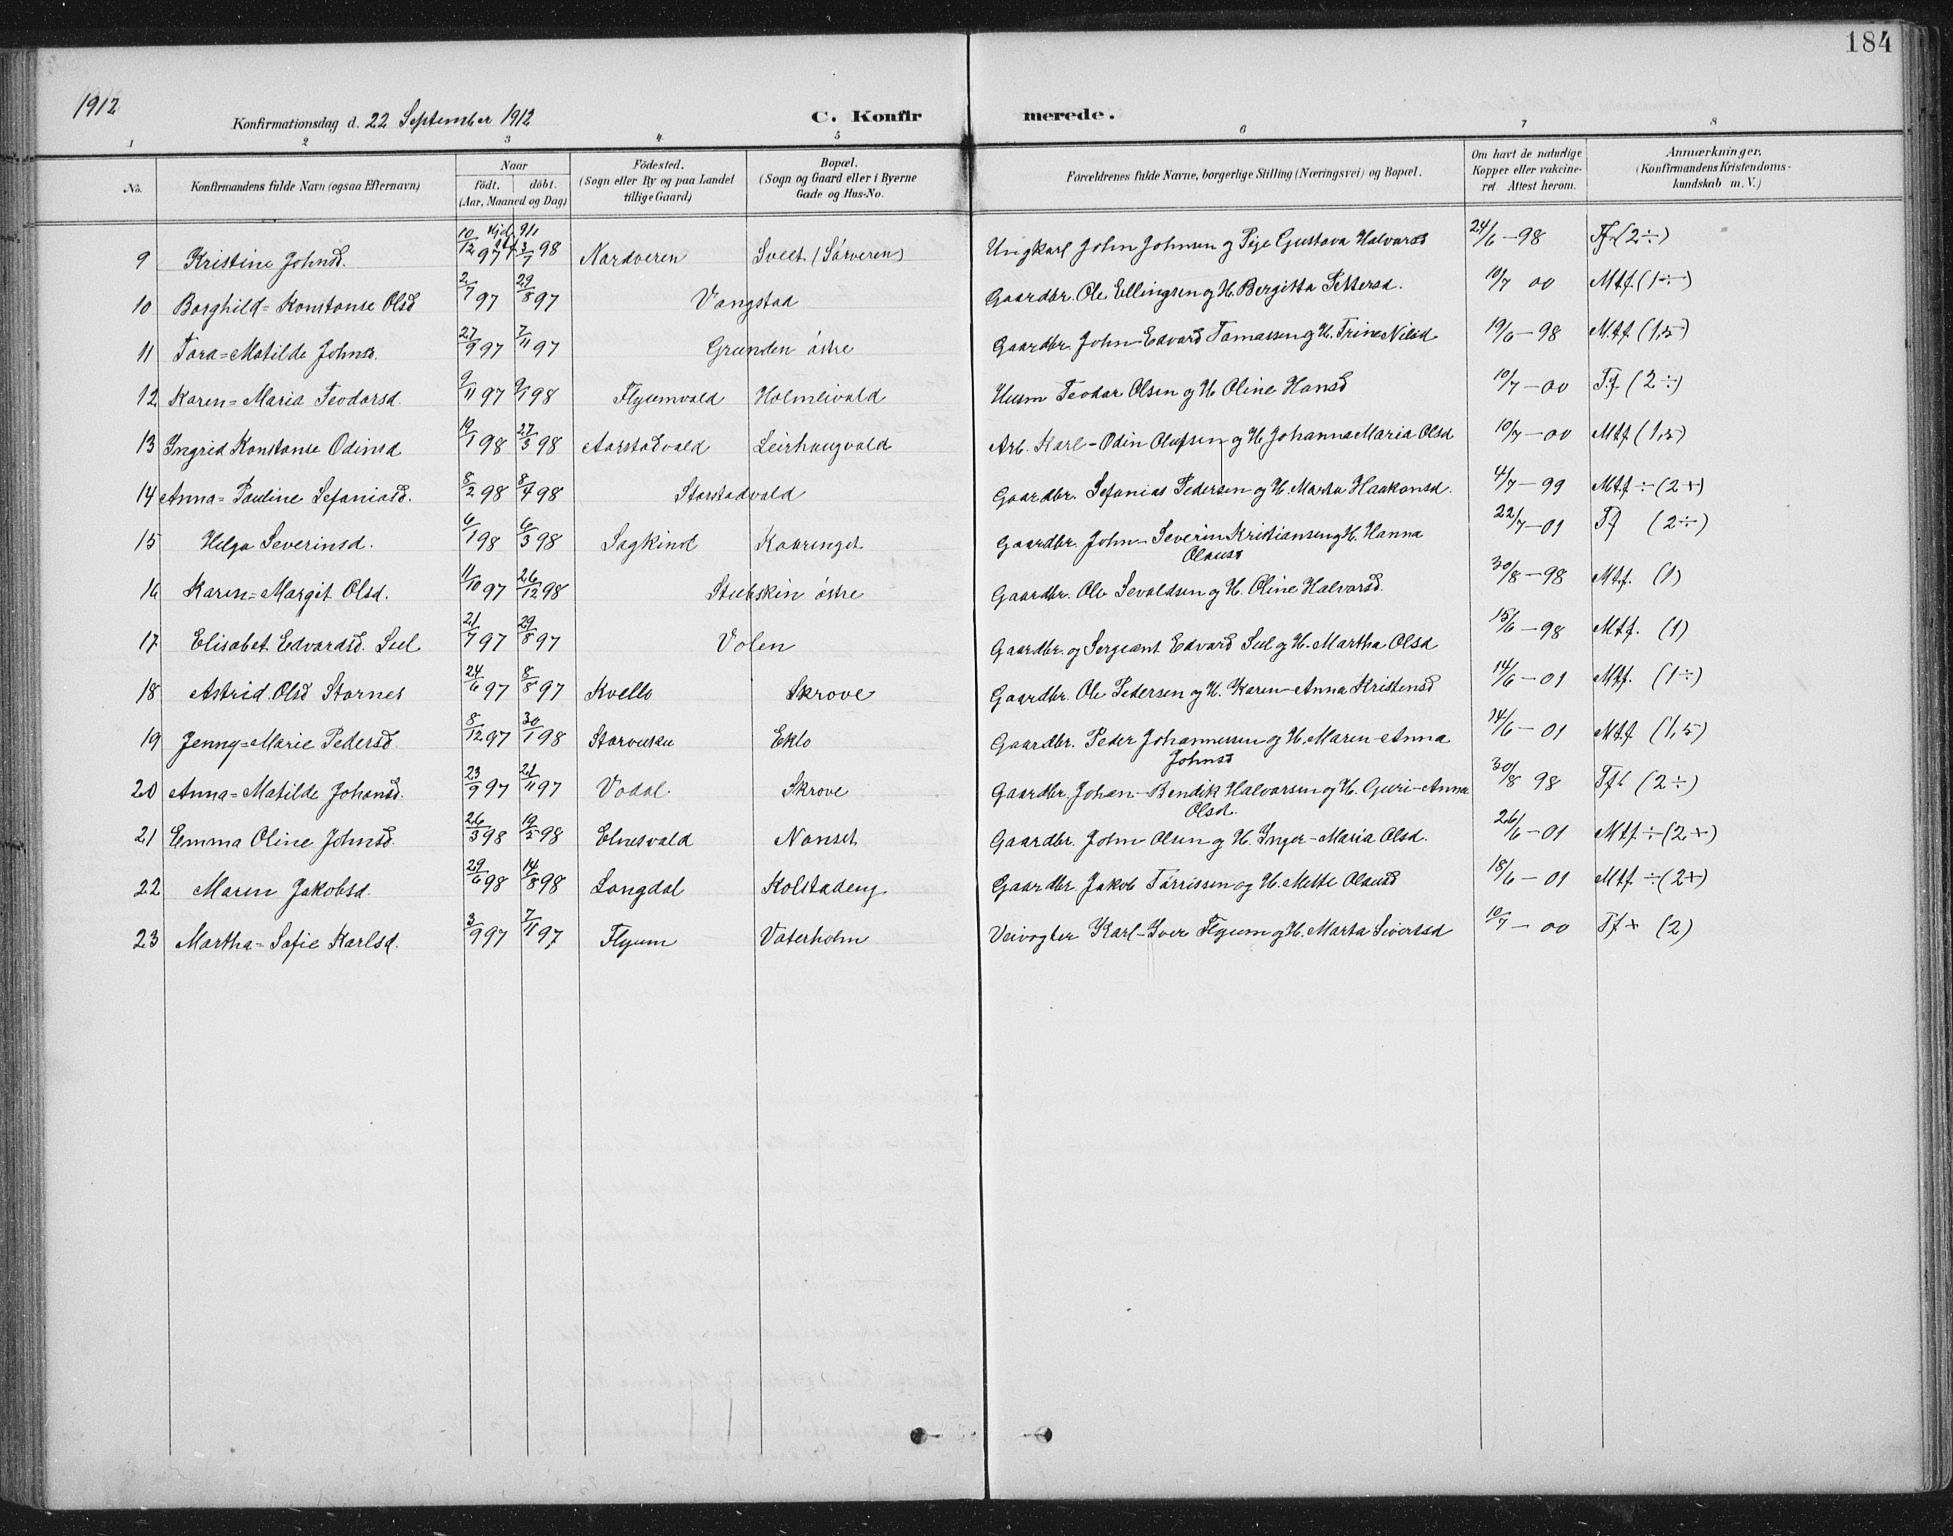 184
1912
Konfirmationsdag d. 22 September 1912 C. Konfir merede.
1 2 3 4 5 6 7 8
No. Konfirmandens fulde Navn (ogsaa Efternavn) Naar födt. döbt. (Aar, Maaned og Dag) Födested. (Sogn eller By og paa Landet tillige Gaard) Bopæl. (Sogn og Gaard eller i Byerne Gade og Hus-No. Forældrenes fulde Navne, borgerlige Stilling (Næringsvei) og Bopæl. Om havt de naturlige Kopper eller vakcineret. Attest herom. Anmærkninger. (Konfirmandens Kristendomskundskab m. V.)
9 Kristine Johnsd. 10/12 97 3/7 98 Nordveren Sveet (Sørveren) Ungkarl John Johnsen og Pige Gustava Halvorsd 24/6-98 Tf (2÷)
10 Borghild=Konstanse Olsd 2/7 97 29/8 97 Vangstad Gaardbr. Ole Ellingsen og H. Bergitta Pettersd. 10/7 00 Mtf. (1÷)
11 Tora=Matilde Johnsd. 27/9 97 7/11 97 Grunden östre Gaardbr. John-Edvard Tomassen og H. Trine Nilsd 19/6-98 Mtf (1,5)
12 Karen=Maria Teodorsd. 9/11 97 9/1 98 Flyumvald Holmlivald Husm Teodor Olsen og H. Oline Hansd 10/7-00 Tf (2÷)
13 Ingrid Konstanse Odinsd 19/1 98 27/3 98 Aarstadvald Leirhaugvald Arb. Karl-Odin Olufsen og H. Johanna Maria Olsd 10/7-00 Mtf (1,5)
14 Anna=Pauline Sefaniasd. 8/2 98 8/4 98 Storstadvald Gaardbr. Sefanias Pedersen og H. Marta Haakonsd. 4/7-99 Mtf÷(2+)
15 Helga Severinsd. 6/1 98 6/3 98 Sagkind Kaaringet Gaardbr. John-Severin Kristiansen og H. Hanna
Olausd 22/7-01 Tf (2÷)
16 Karen=Margit Olsd. 11/10 97 26/12 98 Stubskin östre Gaardbr. Ole Sevaldsen og H. Oline Halvorsd. 30/8-98 Mtf. (1)
17 Elisabet Edvardsd. Sul 21/7 97 29/8 97 Volen Gaardbr. og Sergeant Edvard Sul og H. Martha Olsd 15/6-98 Mtf. (1)
18 Astrid Olsd Stornes 24/6 97 8/8 97 Kvello Skrove Gaardbr. Ole Pedersen og H. Karen-Anna Kristensd 14/6-01 Mtf. (1÷)
19 Jenny=Marie Pedersd. 8/12 97 30/1 98 Storvuku Eklo Gaardbr. Peder Johannessen og H. Maren-Anna
Johnsd 14/6-01 Mtf (1,5)
20 Anna=Matilde Johansd. 23/9 97 21/11 97 Vodal. Skrove Gaardbr. Johan-Bendik Halvorsen og H. Guri-Anna
Olsd. 30/8 98 Tf (2÷)
21 Emma Oline Johnsd. 26/3 98 19/5 98 Elnesvald Nonset Gaardbr. John Olsen og H. Inger-Maria Olsd. 26/6-01 Mtf÷(2+)
22 Maren Jakobsd. 29/6 98 14/8 98 Langdal Kolstadeng Gaardbr. Jakob Tørrissen og H. Mette Olausd 18/6-01 Mtf ÷(2+)
23 Martha=Sofie Karlsd. 3/9 97 7/11 97 Flyum Vaterholm Veivogter Karl-Iver Flyum og H. Marta Sivertsd 10/7-00 Tf+ (2)